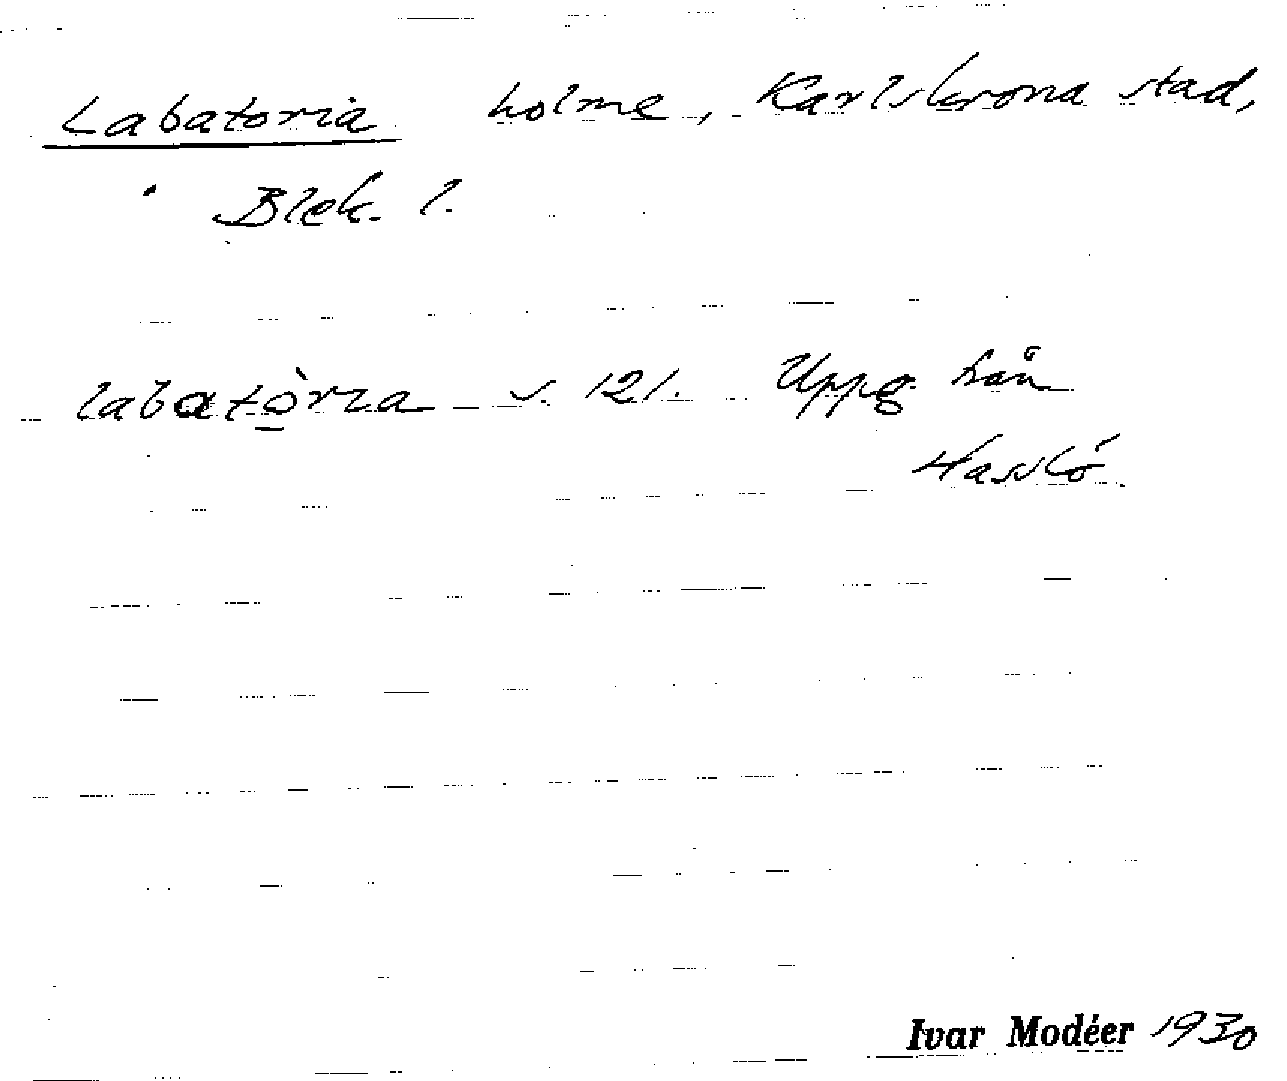 Labatoria holme, Karlskrona stad,
Blek. l.
labatò̱rıa s. 121. Uppg. från
Hasslö.
Ivar Modéer 1930